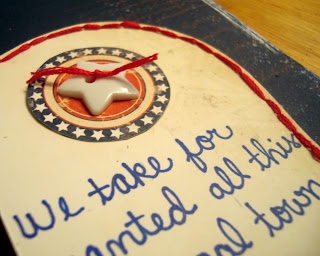 We take for
anted all this
al town